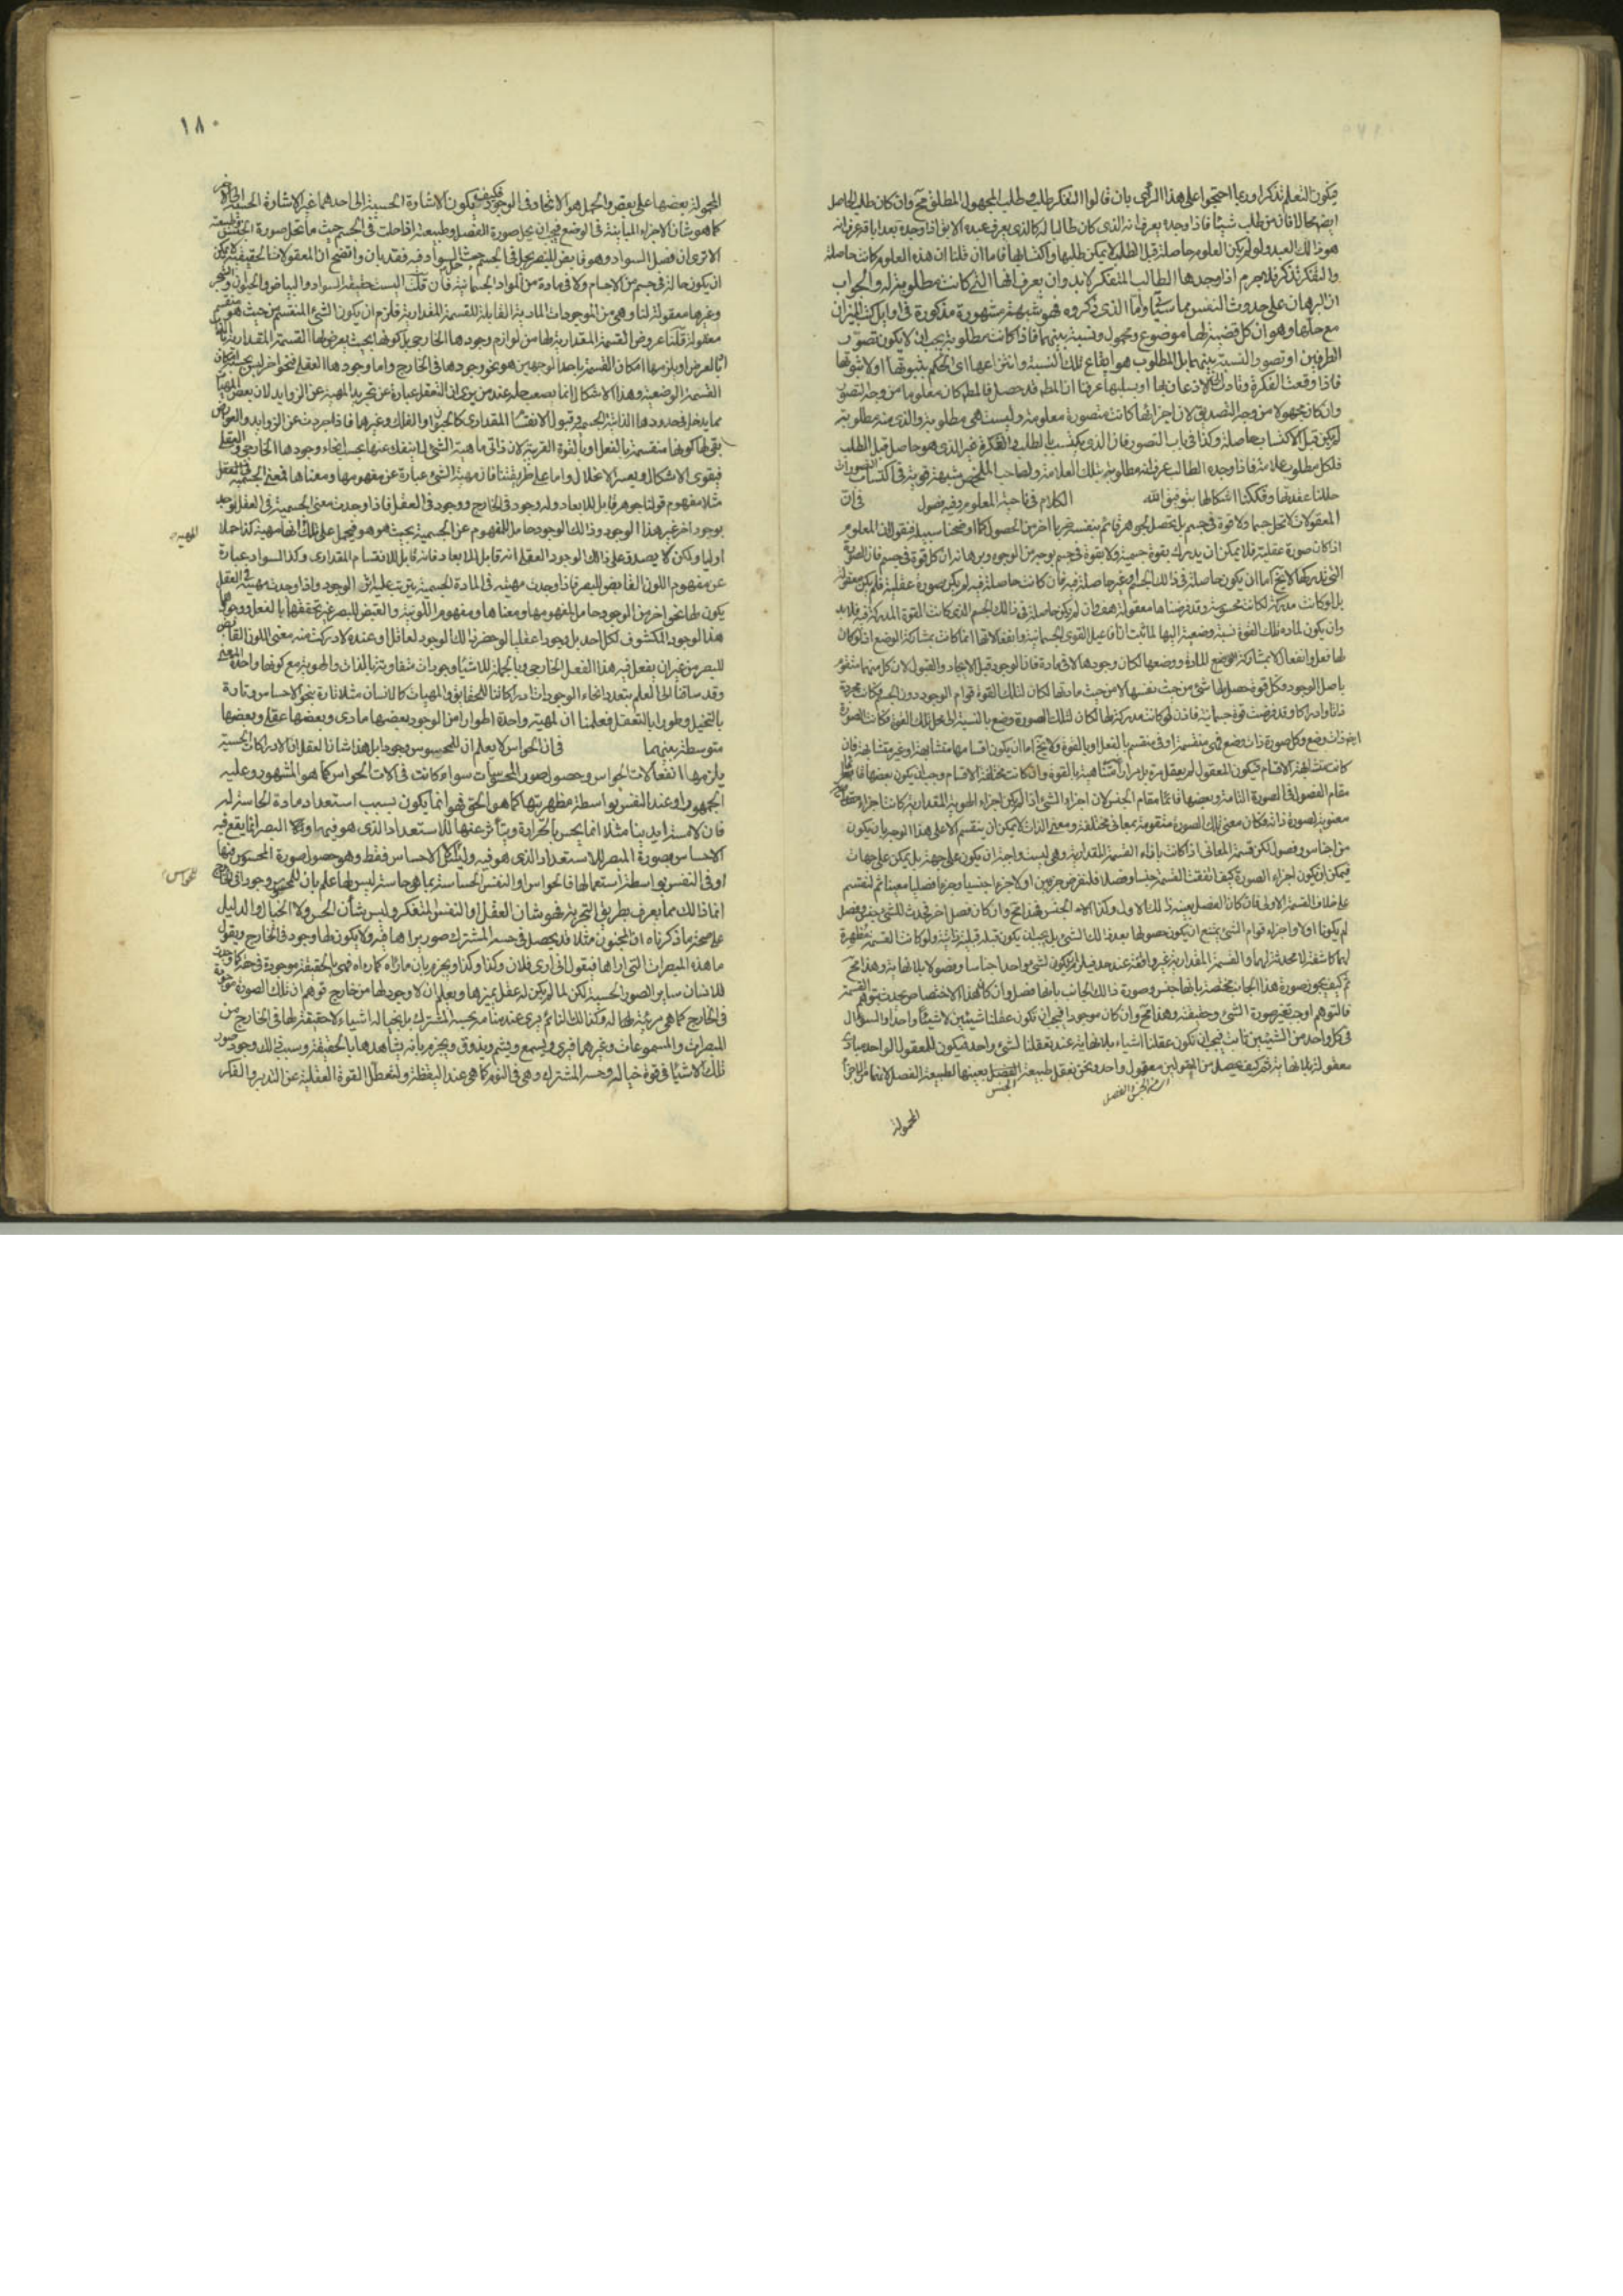 فيكون التعلم تذكرا وربما احتجوا على هذا الرأي بان قالوا التفكر طلب وطلب المجهول المطلق مح وان كان طلب الحاصل
ايضا محالا فان من طلب شيئا فاذا وجده يعرف انه الذي كان طالبا له كالذي يعرف عبده الابق اذا وجده بعد اباقه عرف انه
هو ذلك العبد ولو لم يكن العلوم حاصلة قبل الطلب لا يمكن طلبها واكتسابها فاما ان قلنا ان هذه العلوم كانت حاصلة
والتفكر تذكر فلا جرم اذا وجدها الطالب المتفكر لابد وان يعرف انها التي كانت مطلوبة له والجواب
ان البرهان على حدوث النفس مما سيأتي واما الذي ذكروه فهو شبهة مشهورة مذكورة في اوايل كتب الميزان
مع حلها وهو ان كل قضية لها موضوع ومحمول ونسبة بينهما فاذا كانت مطلوبة يجب ان لا يكون تصور
الطرفين او تصور النسبة بينهما بل المطلوب هو ايقاع تلك النسبة وانتزاعها اي الحكم بثبوتها اولا ثبوتها
فاذا وقعت الفكرة وتأدت الى الاذعان بها او بسلبها عرفنا ان المطلوب قد حصل فالمطلوب كان معلوما من وجه التصور
وان كان مجهولا من وجه التصديق لان اجزائها كانت متصورة معلومة وليست هي مطلوبة والذي منه مطلوبية
لم يكن قبل الاكتساب حاصلة وكذا في باب التصور فان الذي يكتسب بالطلب والفكر غير الذي هو حاصل قبل الطلب
فلكل مطلوب علامة فاذا وجده الطالب عرف انه مطلوبه بتلك العلامة ولصاحب الملخص شبهة قوية في اكتساب التصورات
حللنا عقدتها وفككنا اشكالها بتوفيق الله الكلام في ناحية المعلوم وفيه فصول في ان
المعقولات لا تحل جسما ولا قوة في جسم بل يحصل لجوهر قائم بنفسه ضربا اخر من الحصول كما اوضحنا سبيله فنقول ان المعلوم
اذا كان صورة عقلية فلا يمكن ان يدرك بقوة جسمية ولا بقوة في جسم بوجه من الوجوه وبرهانه ان كل قوة في جسم فان الصورة
التي تدركها لا يخ اما ان يكون حاصلة في ذلك الجسم او غير حاصلة فيه فان كانت حاصلة فيه لم يكن صورة عقلية فلم يكن معقولة
بل لو كانت مدركة لكانت محسوسة وقد فرضناها معقولة هف وان لم يكن حاصلة في ذلك الجسم الذي كانت القوة المدركة فيه فلا بد
وان يكون لمادة تلك القوة نسبة وضعية اليها لما ثبت ان افاعيل القوى الجسمانية وانفعالاتها انما كانت بمشاركة الوضع اذ لو كان
لها فعل وانفعال لا بمشاركة الوضع للمادة ووضعها لكان وجودها لا في مادة فان الوجود قبل الايجاد والقبول لان كل منهما متقوم
باصل الوجود وكل قوة حصل لها شئ من حيث نفسها لا من حيث مادتها لكان لتلك القوة قوام الوجود دون الجسم فكانت مجردة
ذاتا وادراكا وقد فرضت قوة جسمانية فاذن لو كانت مدركة لها لكان لتلك الصورة وضع بالنسبة الى محل تلك القوة فكانت الصورة
ذات وضع وكل صورة ذات وضع فهي منقسمة او في منقسم بالفعل او بالقوة ولا يخ اما ان يكون اقسامها متشابهة او غير متشابهة فان
كانت متشابهة الاقسام فيكون المعقول لم يعقل مرة بل مرارا متناهية بالقوة وان كانت مختلفة الاقسام وجب ان يكون بعضها قائما
مقام الفصول في الصورة التامة وبعضها قائما مقام الجنس لان اجزاء الشئ اذا لم يكن اجزاء الهوية المقدارية كانت اجزاء
معنوية لصورة ذاته فكان معنى تلك الصورة متقومة بمعاني مختلفة ومعنى الذات لا يمكن ان ينقسم الا على هذا الوجه بان يكون
من اجناس وفصول لكن قسمة المعاني اذا كانت بازاء القسمة المقدارية وهي ليست واجبة ان يكون على جهة بل يمكن على جهات
فيمكن ان يكون اجزاء الصورة كيف اتفقت القسمة جنسا وفصلا فلنفرض جزئين اولا جزءا جنسيا وجزءا فصليا معينا ثم لنقسم
على خلاف القسمة الاولى فان كان الفصل بعينه ذلك الاول وكذا الجنس فهذا مح وان كان فصل اخر فحدث للشئ جنس وفصل
لم يكونا اولا واجزاء قوام الشئ يمتنع ان يكون حصولها بعد ذلك الشئ بل يجب ان يكون قبله قبلية ذاتية ولو كانت القسمة مظهرة
لهما كاشفة لا محدثة لهما والقسمة المقدارية غير واقفة عند حد فيلزم ان يكون لشئ واحد اجناسا وفصولا بلا نهاية وهذا مح
ثم كيف يجوز صورة هذا الجانب مختصة بانها جنس وصورة ذلك الجانب بانها فصل وان كان هذا الاختصاص يحدث بتوهم القسمة
فالتوهم اوجب تغير صورة الشئ وحقيقته وهذا مح وان كان موجودا فيجب ان تكون عقلنا شيئين لا شيئا واحدا والسؤال
في كل واحد من الشيئين ثابت فيجب ان تكون عقلنا اشياء بلا نهاية عند تعقلنا لشئ واحد فيكون للمعقول الواحد مبادي
معقولة بلا نهاية ثم كيف يحصل من المعقولين معقول واحد ونحن نعقل طبيعة الفصل بعينها لطبيعة
الجنس
المحمولة
١٨٠
المحمولة بعضها على بعض والحمل هو الاتحاد في الوجود فكيف يكون الاشارة الحسية الى احدهما غير الاشارة الحسية الى الاخر
كما هو شأن الاجزاء المباينة في الوضع فيجب ان يحل صورة الفصل وطبيعته اذا حلت في الجسم حيث ما تحل صورة الجنس وطبيعته
الا ترى ان فصل السواد وهو قابض للبصر يحل في الجسم حيث حل السواد فيه فقد بان واتضح ان المعقولات الحقيقية لا يمكن
ان يكون حالة في جسم من الاجسام ولا في مادة من المواد الجسمانية فان قلت اليست حقيقة السواد والبياض والحيوان والحجر
وغيرها معقولة لنا وهي من الموجودات المادية القابلة للقسمة المقدارية فلزم ان يكون الشئ المنقسم من حيث هو منقسم
معقولا قلنا عروض القسمة المقدارية لها من لوازم وجودها الخارجي بل كونها بحيث يعرض لها القسمة المقدارية بالذات
او بالعرض او يلزمها امكان القسمة باحد الوجهين هو نحو وجودها في الخارج واما وجودها العقلي فنحو اخر ليس بحسبه امكان
القسمة الوضعية وهذا الاشكال انما يصعب حله عند من يرى ان التعقل عبارة عن تجريد المهية عن الزوايد لان بعض المهيات
مما يدخل في حدودها الذاتية الجسم وقبول الانقسام المقداري كالحيوان والفلك وغيرهما فاذا جردت عن الزوايد والعوارض
بقي لها كونها منقسمة بالفعل او بالقوة القريبة لان ذاتي ماهية الشئ لا ينفك عنها بحسب انحاء وجودها الخارجي والعقلي
فيقوى الاشكال ويعسر الانحلال واما على طريقتنا فان مهية الشئ عبارة عن مفهومها ومعناها فمعنى الجسمية في العقل
مثلا مفهوم قولنا جوهر قابل للابعاد وله وجود في الخارج ووجود في العقل فاذا وجدت معنى الجسمية في العقل يوجد
بوجود اخر غير هذا الوجود وذلك الوجود حامل للمفهوم عن الجسمية بحيث هو هو فيحمل على تلك انها مهية كذا حملا
المهية
اوليا ولكن لا يصدق على ذلك الوجود العقلي انه قابل للابعاد فانه قابل للانقسام المقداري وكذا السواد عبارة
عن مفهوم اللون القابض للبصر فاذا وجدت مهيته في المادة الجسمية يترتب عليه اثر الوجود واذا وجدت مهيته في العقل
يكون لها نحوا اخر من الوجود حامل لمفهومها ومعناها ومفهوم اللونية والقبض للبصر غير تحققها بالفعل ووجود
هذا الوجود المكشوف لكل احد بل وجودا عقليا لو حضر ذلك الوجود لعاقل او عنده لادركت منه معنى اللون القابض
للبصر من غير ان يفعل فيه هذا الفعل الخارجي وبالجملة للاشياء وجودات متفاوتة بالذات والهوية مع كونها واحدة المعنى
وقد ساقنا الى العلم بتعدد انحاء الوجودات ادراكاتنا للحقايق والمهيات كالانسان مثلا تارة بنحو الاحساس وتارة
بالتخيل وطورا بالتعقل فعلمنا ان لمهية واحدة اطوارا من الوجود بعضها مادي وبعضها عقلي وبعضها
متوسطة بينهما في ان الحواس لا يعلم ان للمحسوس وجودا بل هذا شان العقل ان الادراكات الحسية
يلزمها انفعالات الحواس وحصول صور المحسوسات سواء كانت في الات الحواس كما هو المشهور وعليه
الجمهور او عند النفس بواسطة مظهريتها كما هو الحق فهو انما يكون بسبب استعداد مادة الحاسة له
فان لامسة ايدينا مثلا انما يحس بالحرارة ويتأثر عنها للاستعداد الذي هو فيها والبصر انما يقع فيه
الاحساس بصورة المبصر للاستعداد الذي هو فيه وليس للحس الا الاحساس فقط وهو حصول صورة المحسوس فيها
او في النفس بواسطة استعمالها فالحواس او النفس الحساسة بما هي حاسة ليس لها علم بان للمحسوس وجودا في الخارج
انما ذلك مما يعرف بطريق التجربة فهو شان العقل او النفس المتفكر وليس شأن الحس ولا الخيال والدليل
على صحة ما ذكرناه ان المجنون مثلا قد يحصل في حسه المشترك صور يراها فيه ولا يكون لها وجود في الخارج ويقول
ما هذه المبصرات التي اراها فيقول اني ارى فلان وكذا وكذا ويجزم بان ما رآه كما رآه فهي بالحقيقة موجودة في حقه كما وجدت
للانسان ساير الصور الحسية لكن لما لم يكن له عقل يميزها ويعلم ان لا وجود لها من خارج توهم ان تلك الصورة موجودة
في الخارج كما هي مرئية لها له وكذلك النائم يرى عند منامه بحسه المشترك بل بخياله اشياء لا حقيقة لها في الخارج من
المبصرات والمسموعات وغيرهما فيرى ويسمع ويشم ويذوق ويجزم بانه يشاهدها بالحقيقة وسبب ذلك وجود صور
تلك الاشياء في قوة خياله وحسه المشترك وهي في النوم كما هي عند اليقظة ولتعطل القوة العقلية عن التدبر والفكر